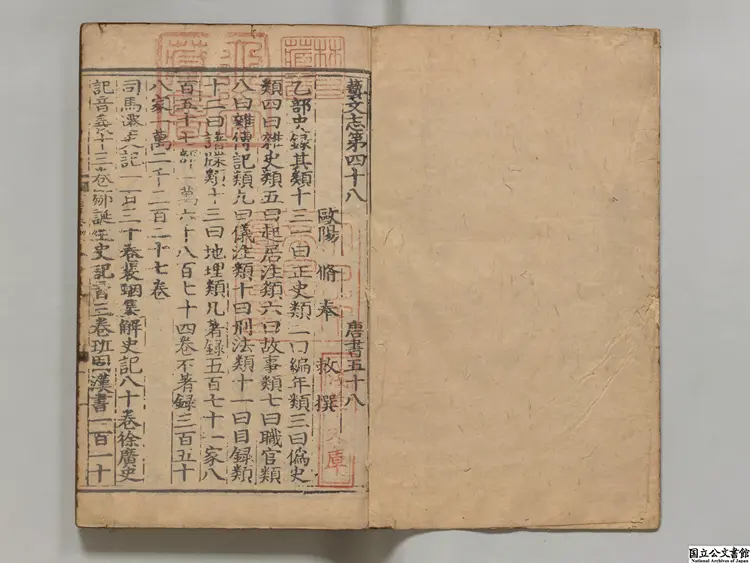 藝文志第四十八 唐書五十八
歐陽 脩 奉 敕 撰
乙部史録其類十三一曰正史類二曰編年類三曰僞史
類四曰雜史類五曰起居注類六曰故事類七曰職官類
八曰雜傳記類九曰儀注類十曰刑法類十一曰目録類
十二曰譜牒類十三曰地理類凡著録五百七十一家八
百五十七部一萬六千八百七十四卷不著録三百五十
八家 萬二千二百二十七卷
司馬遷史記一百三十卷裴駰集解史記八十卷徐廣史
記音義十三卷鄒誕生史記音三卷班固漢書一百一十
国立公文書館
National Archives of Japan